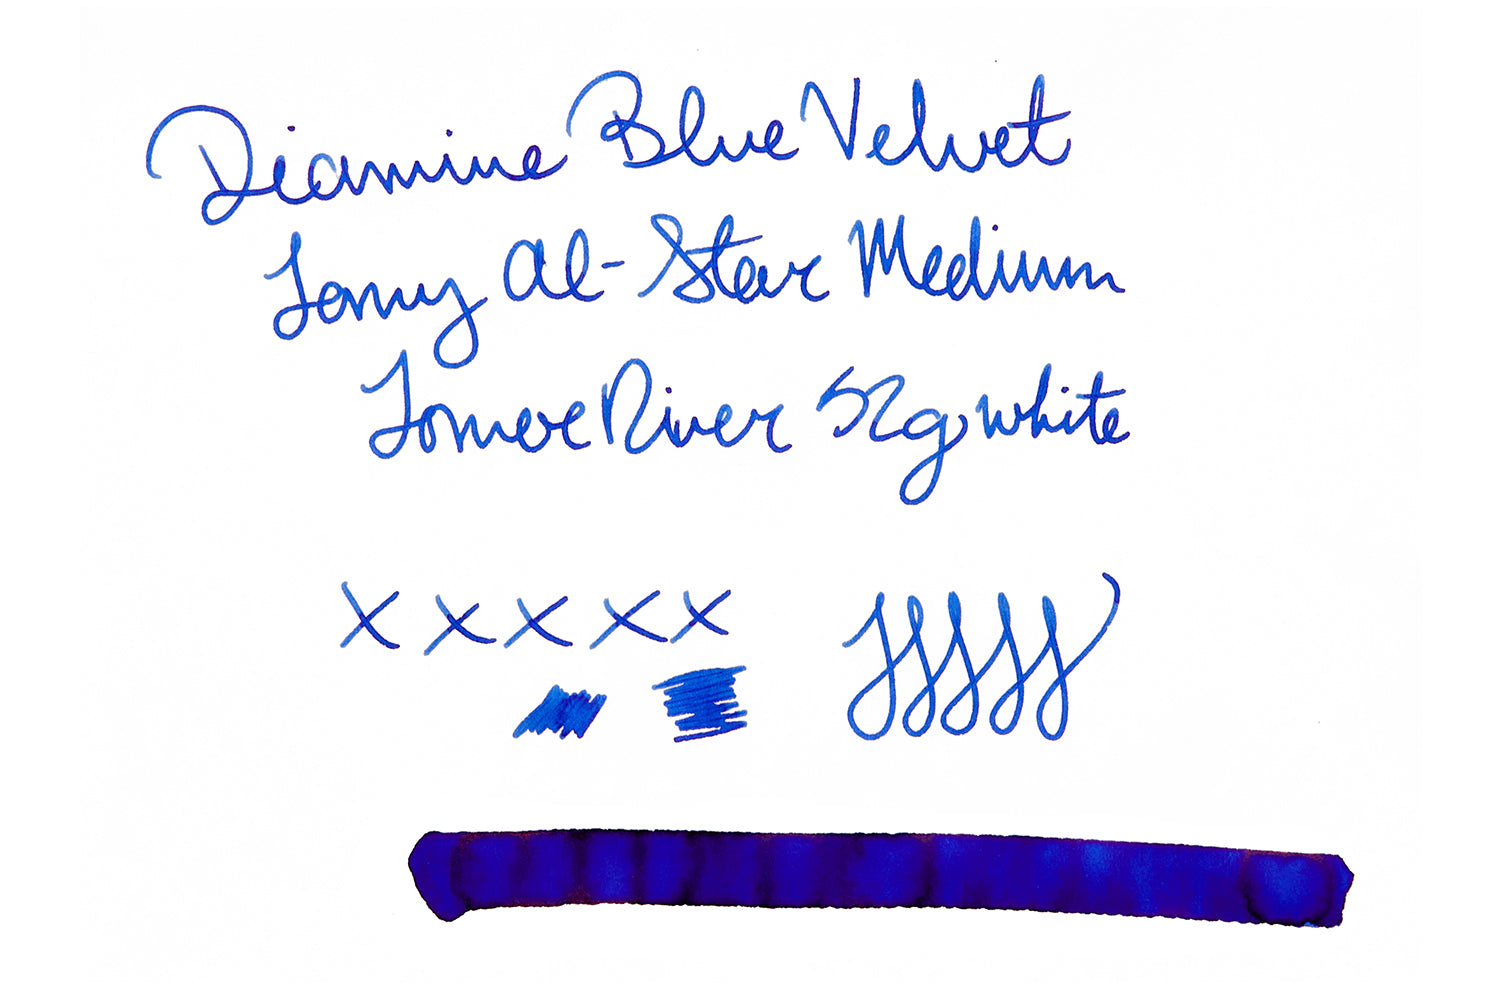 Diamine Blue Velvet
Lamy Al-Star Medium
Tomoe River 52g white
X X X X X